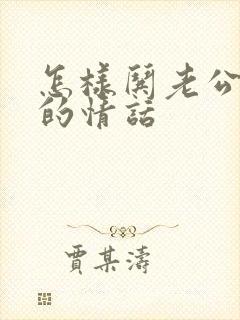 怎樣鬨老公
的情話
賈某濤